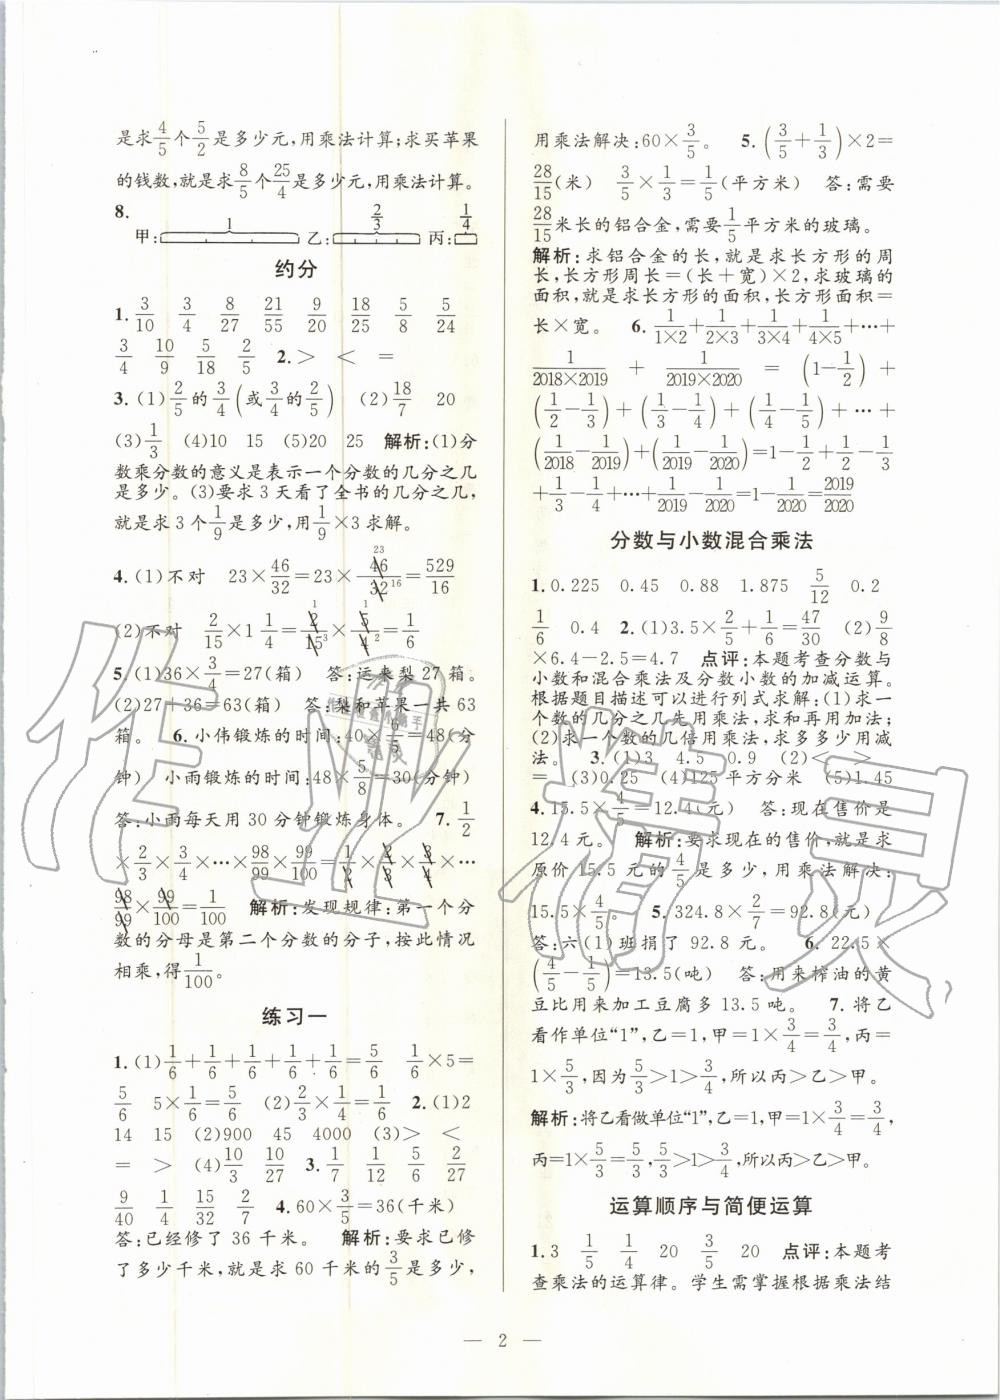 是求4/5个5/2是多少元,用乘法计算;求买苹果
的钱数,就是求8/5个25/4是多少元,用乘法计算。
8. 甲: 1 乙: 2/3 丙: 1/4
约分
1. 3/10 3/4 8/27 21/55 9/20 18/25 5/8 5/24
3/4 10/9 5/18 2/5 2.> < =
3.(1)2/5的3/4(或3/4的2/5) (2)18/7 20
(3)1/3 (4)10 15 (5)20 25 解析:(1)分
数乘分数的意义是表示一个分数的几分之几
是多少。(3)要求3天看了全书的几分之几,
就是求3个1/9是多少,用1/9×3求解。
4.(1)不对 23×46/32=23×46 23/32 16=529/16
(2)不对 2/15×1 1/4=2 1/15 3×5 1/4 2=1/6
5.(1)36×3/4=27(箱) 答:运来梨27箱。
(2)27+36=63(箱) 答:梨和苹果一共63
箱。 6.小伟锻炼的时间:40×6/5=48(分
钟) 小雨锻炼的时间:48×5/8=30(分钟)
答:小雨每天用30分钟锻炼身体。 7.1/2
×2/3×3/4×…×98/99×99/100=1/2×2/3×3/4×…
98/99×99/100=1/100 解析:发现规律:第一个分
数的分母是第二个分数的分子,按此情况
相乘,得1/100。
练习一
1.(1)1/6+1/6+1/6+1/6+1/6=5/6 1/6×5=
5/6 5×1/6=5/6 (2)2/3×1/4=1/6 2.(1)2
14 15 (2)900 45 4000 (3)> <
= > (4)10/3 10/27 3.1/7 1/12 5/6 2/27
9/40 1/4 15/32 2/7 4.60×3/5=36(千米)
答:已经修了36千米。 解析:要求已修
了多少千米,就是求60千米的3/5是多少,
用乘法解决:60×3/5。 5.(3/5+1/3)×2=
28/15(米) 3/5×1/3=1/5(平方米) 答:需要
28/15米长的铝合金,需要1/5平方米的玻璃。
解析:求铝合金的长,就是求长方形的周
长,长方形周长=(长+宽)×2,求玻璃的
面积,就是求长方形的面积,长方形面积=
长×宽。 6.1/1×2+1/2×3+1/3×4+1/4×5+…+
1/2018×2019 + 1/2019×2020 = (1-1/2) +
(1/2-1/3)+(1/3-1/4)+(1/4-1/5)+…+
(1/2018-1/2019)+(1/2019-1/2020)=1-1/2+1/2-1/3
+1/3-1/4+…+1/2019-1/2020=1-1/2020=2019/2020
分数与小数混合乘法
1.0.225 0.45 0.88 1.875 5/12 0.2
1/6 0.4 2.(1)3.5×2/5+1/6=47/30 (2)9/8
×6.4-2.5=4.7 点评:本题考查分数与
小数和混合乘法及分数小数的加减运算。
根据题目描述可以进行列式求解:(1)求一
个数的几分之几先用乘法,求和再用加法;
(2)求一个数的几倍用乘法,求多多少用减
法。 3.(1)3 4.5 0.9 (2)< >
= (3)0.25 (4)125平方分米 (5)1.45
4.15.5×4/5=12.4(元) 答:现在售价是
12.4元。 解析:要求现在的售价,就是求
原价15.5元的4/5是多少,用乘法解决:
15.5×4/5。 5.324.8×2/7=92.8(元)
答:六(1)班捐了92.8元。 6.22.5×
(4/5-1/5)=13.5(吨) 答:用来榨油的黄
豆比用来加工豆腐多13.5吨。 7.将乙
看作单位“1”,乙=1,甲=1×3/4=3/4,丙=
1×5/3,因为5/3>1>3/4,所以丙>乙>甲。
解析:将乙看做单位“1”,乙=1,甲=1×3/4=3/4,
丙=1×5/3=5/3,5/3>1>3/4,所以丙>乙>甲。
运算顺序与简便运算
1.3 1/5 1/4 20 3/5 20 点评:本题考
查乘法的运算律。学生需掌握根据乘法结
— 2 —
作业精灵